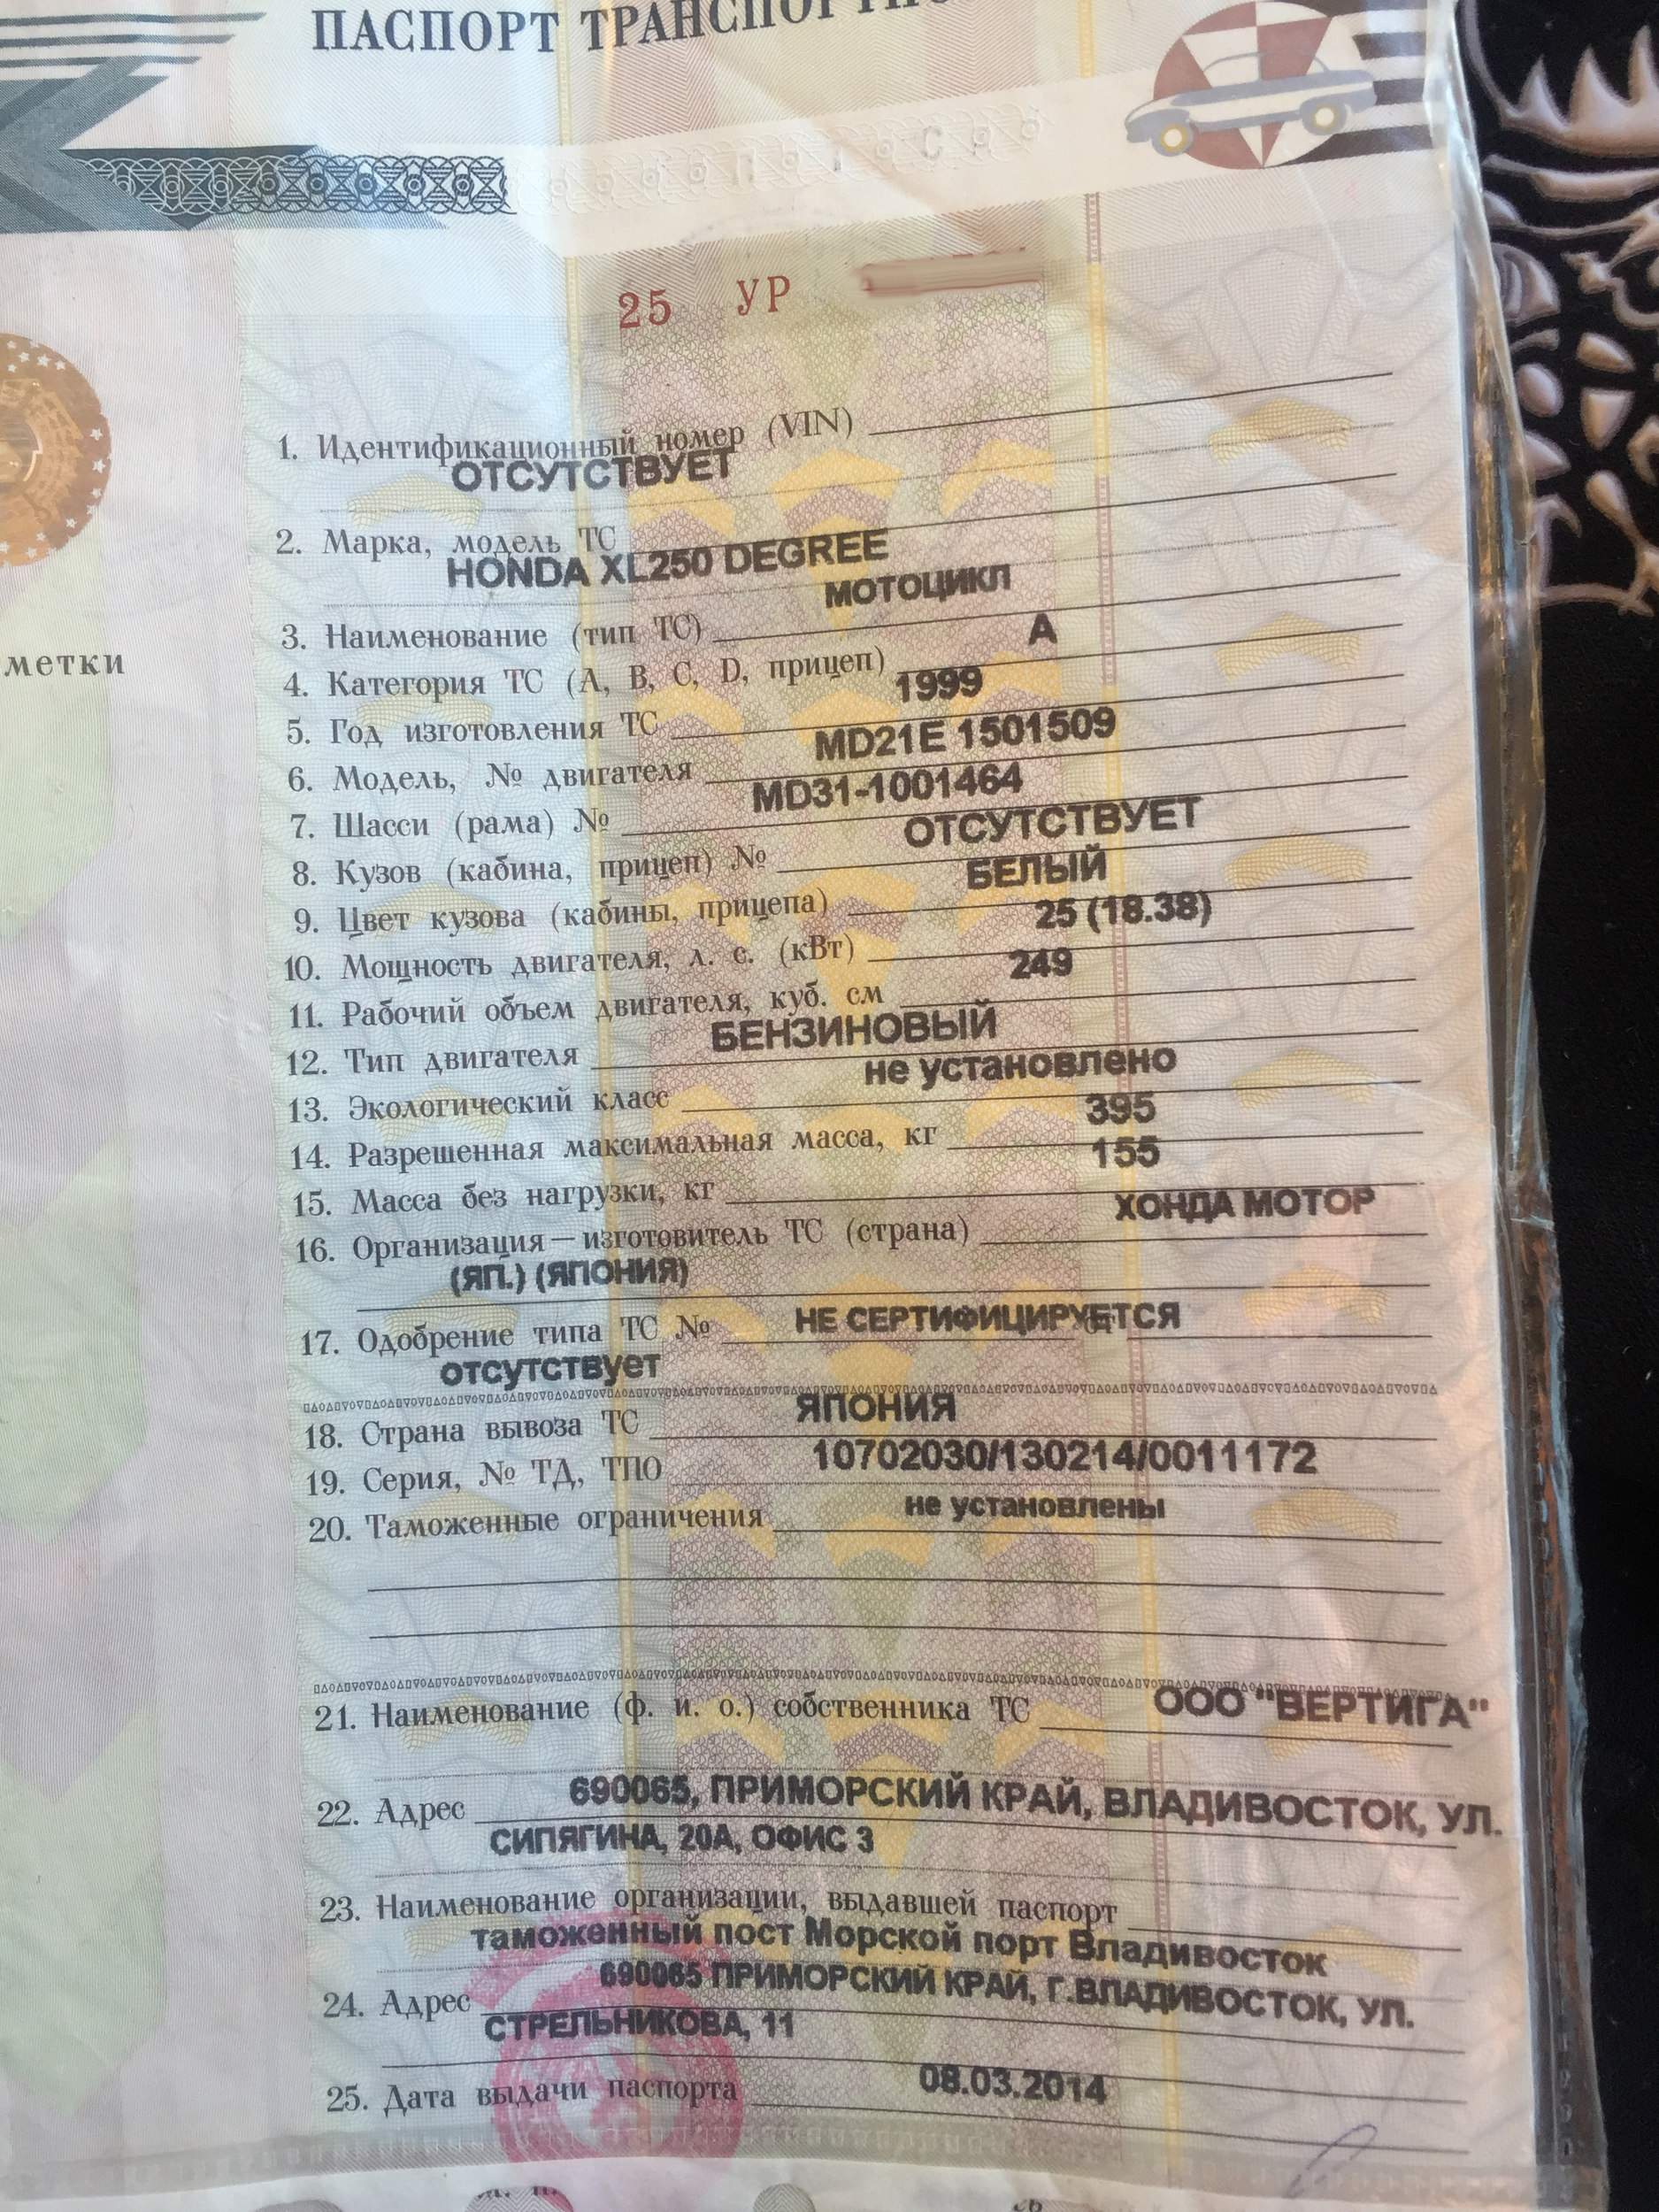 ПАСПОРТ
25 УР
метки
1. Идентификационный номер (VIN)
ОТСУТСТВУЕТ
2. Марка, модель ТС
HONDA XL250 DEGREE
3. Наименование (тип ТС) МОТОЦИКЛ
4. Категория ТС (A, B, C, D, прицеп) A
5. Год изготовления ТС 1999
6. Модель, № двигателя MD21E 1501509
7. Шасси (рама) № MD31-1001464
8. Кузов (кабина, прицеп) № ОТСУТСТВУЕТ
9. Цвет кузова (кабины, прицепа) БЕЛЫЙ
10. Мощность двигателя, л. с. (кВт) 25 (18.38)
11. Рабочий объем двигателя, куб. см 249
12. Тип двигателя БЕНЗИНОВЫЙ
13. Экологический класс не установлено
14. Разрешенная максимальная масса, кг 395
15. Масса без нагрузки, кг 155
16. Организация—изготовитель ТС (страна) ХОНДА МОТОР
(ЯП.) (ЯПОНИЯ)
17. Одобрение типа ТС № НЕ СЕРТИФИЦИРУЕТСЯ
отсутствует
18. Страна вывоза ТС ЯПОНИЯ
19. Серия, № ТД, ТПО 10702030/130214/0011172
20. Таможенные ограничения не установлены
21. Наименование (ф. и. о.) собственника ТС ООО "ВЕРТИГА"
22. Адрес 690065, ПРИМОРСКИЙ КРАЙ, ВЛАДИВОСТОК, УЛ.
СИПЯГИНА, 20А, ОФИС 3
23. Наименование организации, выдавшей паспорт
таможенный пост Морской порт Владивосток
24. Адрес 690065 ПРИМОРСКИЙ КРАЙ, Г.ВЛАДИВОСТОК, УЛ.
СТРЕЛЬНИКОВА, 11
25. Дата выдачи паспорта 08.03.2014